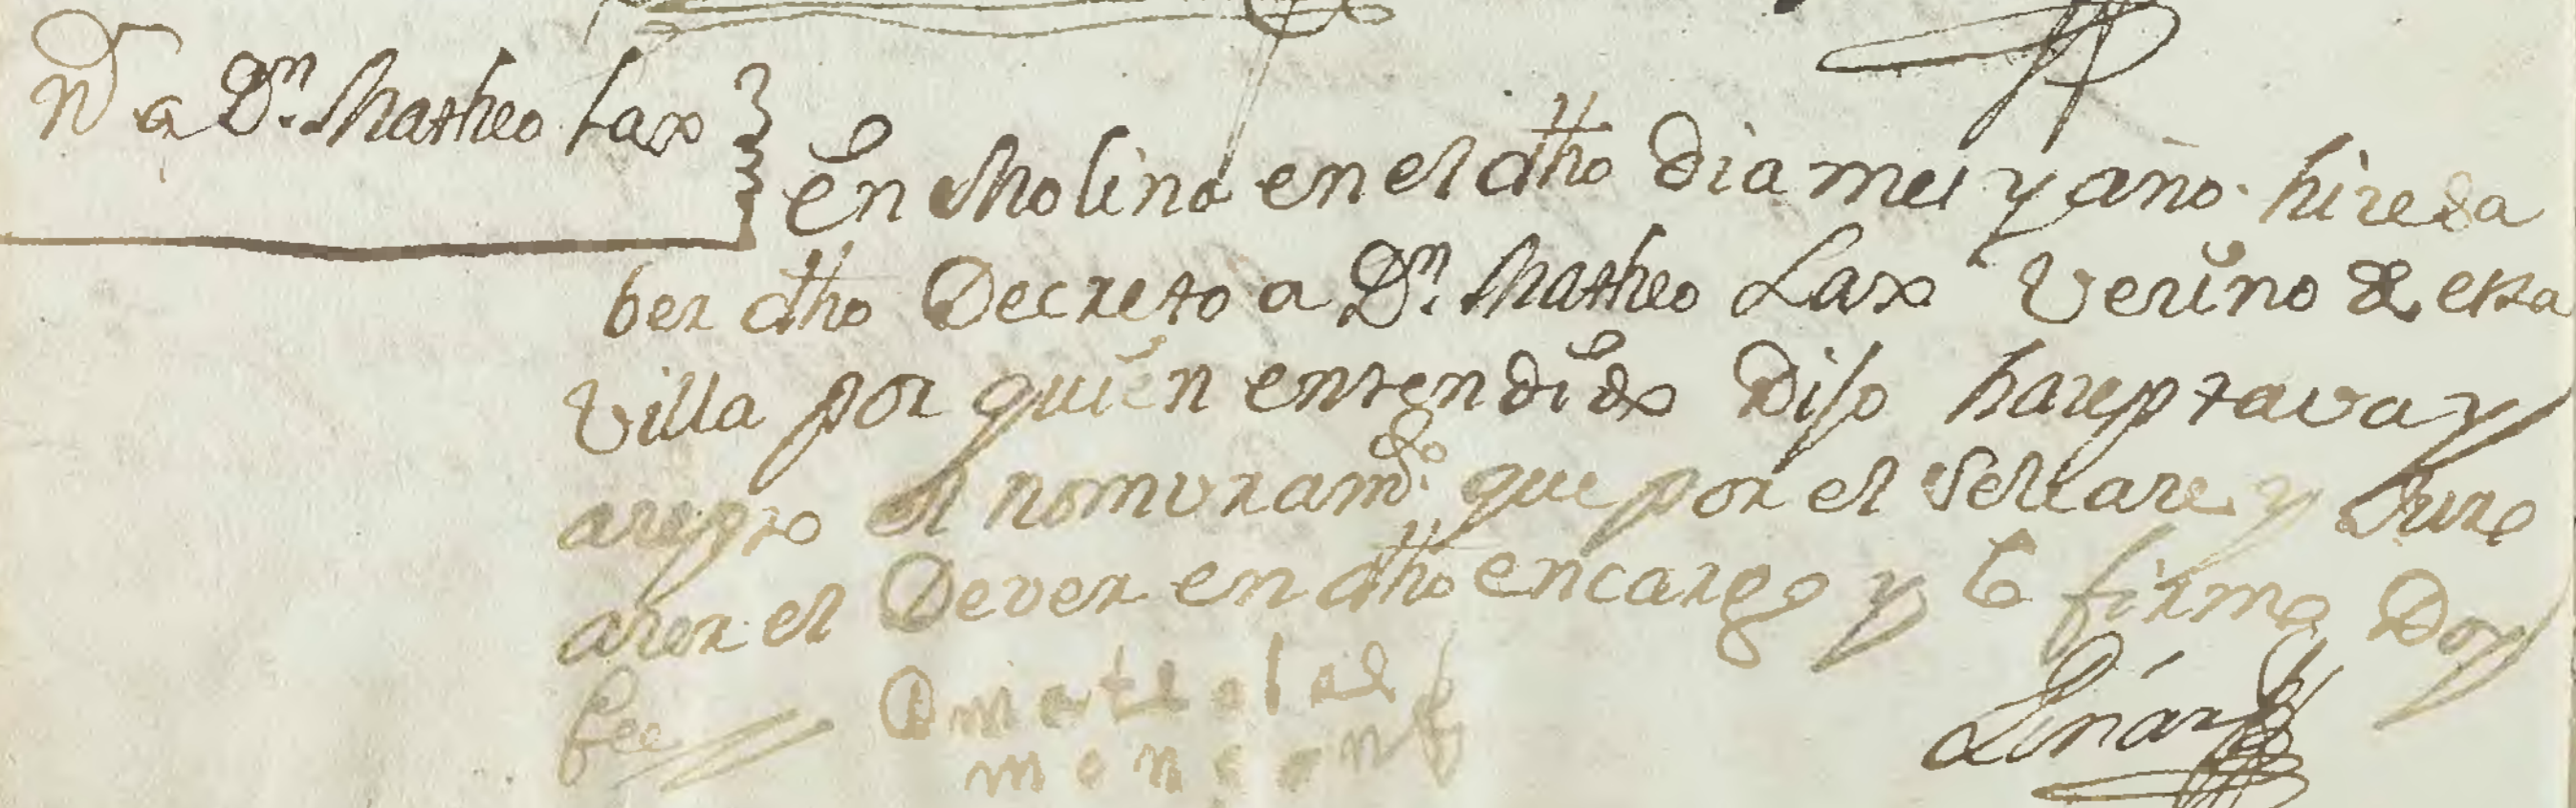 Nn a Dn. Matheo Lax
En Molina en el dho dia mes y año hize sa
ber dho Decreto a Dn. Matheo Lax Vecino de esta
Villa por quien entendido Dijo haceptava y
acepto el nomvramdo. que por el sele are y Jura
arer el Dever en dho encargo y lo firma Doy
fee
Linares